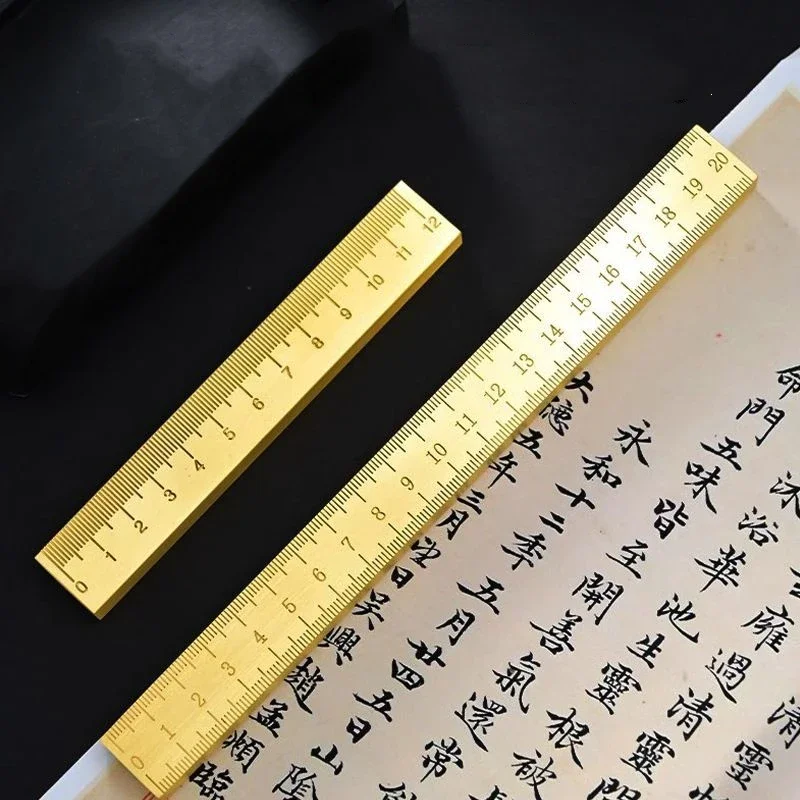 0 1 2 3 4 5 6 7 8 9 10 11 12
0 1 2 3 4 5 6 7 8 9 10 11 12 13 14 15 16 17 18 19 20
清靈
雍過清靈門
沐浴華池生靈根被
命門五味皆至開善氣還常
永和十二季五月廿四五日山陰
大德五年三月廿日吴興趙孟頫臨